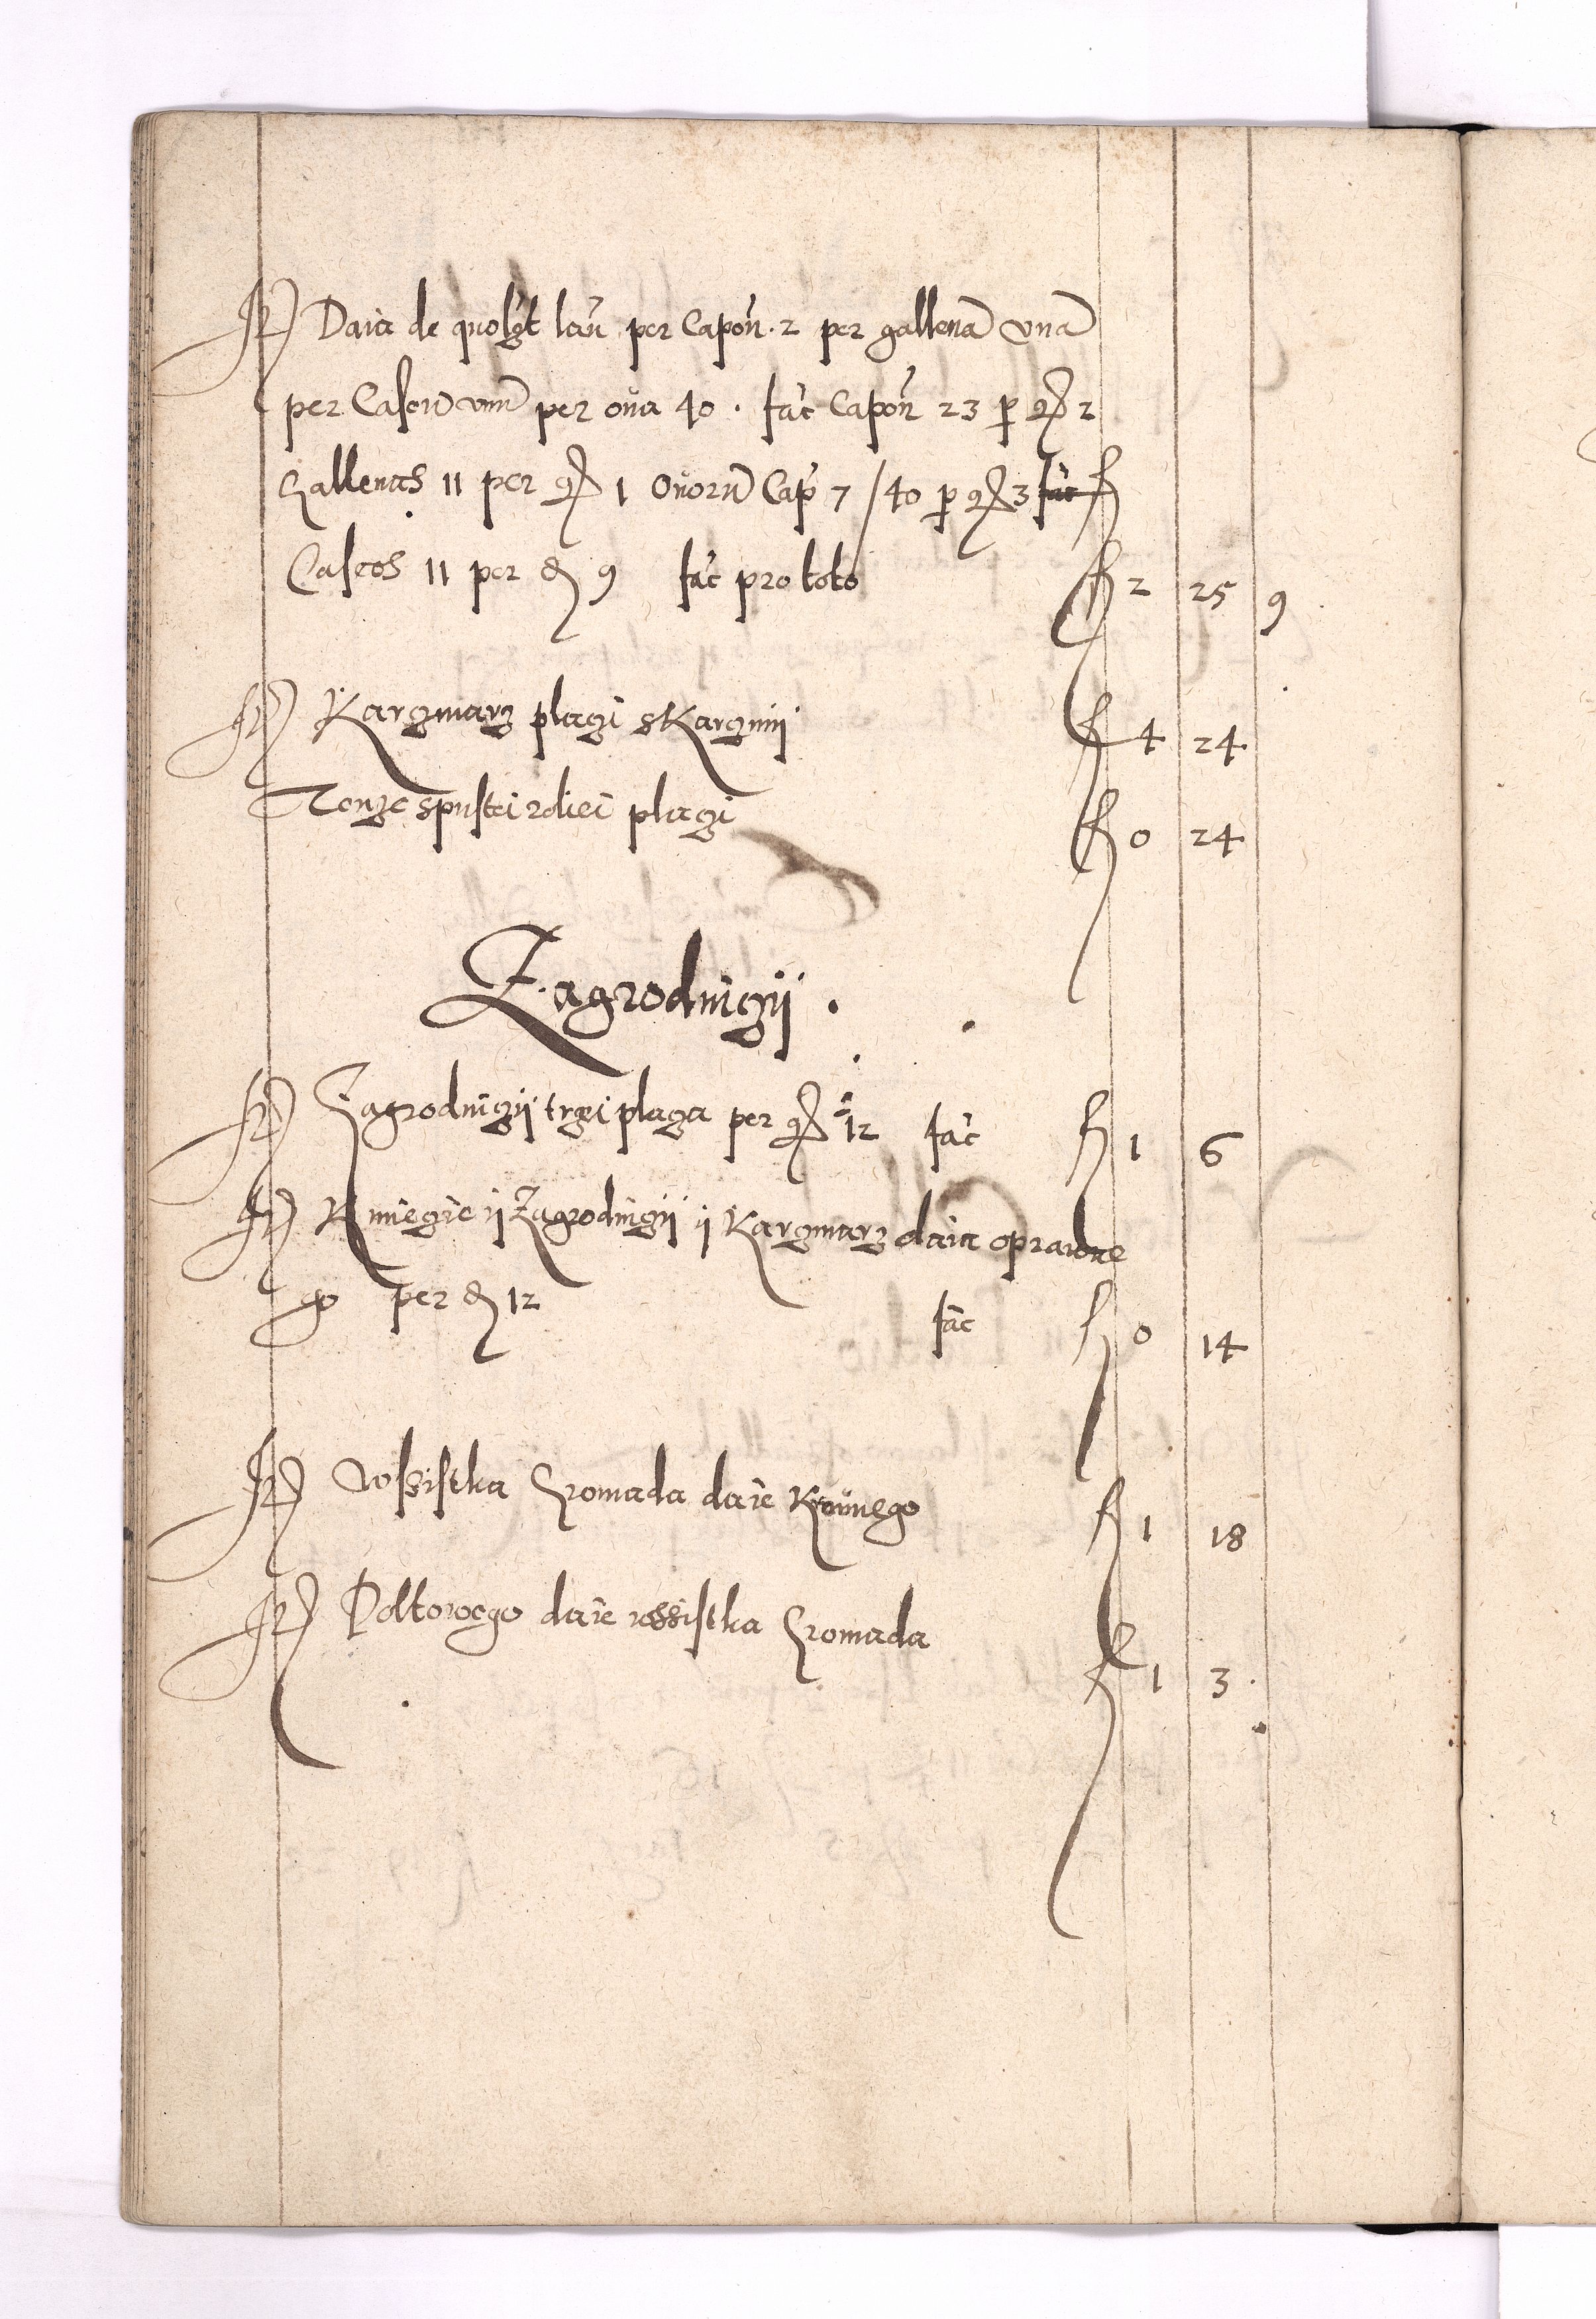 It Daia de quolẏt lan̄ per Capon̄. 2 per gallenā vnā
per Caseū vnū per oua 40. fac̄ Capon̄ 23 p gr 2
Gallenas 11 per gr 1 Ouorū Cap 7/40 p gr 3 fac̄ fl
Caseos 11 per d 9 fac̄ pro toto fl 2 25 9
It Karczmarz placzi sKarczmij fl 4 24
Tenze spustei roliei placzi fl 0 24
Zagrodniczij.
It Zagrodniczij trzei placza per gr 12 fac̄ fl 1 6
It Kmieczie ij Zagrodniczij ij Karczmarz daia oprawne
go per d 12 fac̄ fl 0 14
It wssistka Gromada daie Krownego fl 1 18
It Poltorocgo daie wssistka Gromada fl 1 3